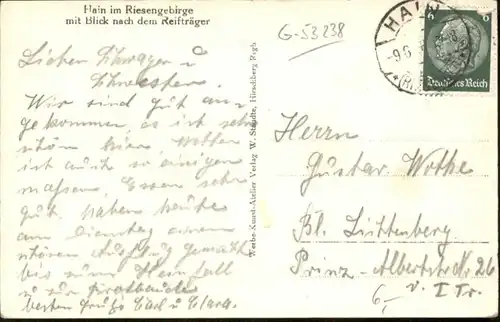 Hain im Riesengebirge
mit Blick nach dem Reifträger
G-53238
HAIN
-9.6
6
6
Deutsches Reich
Lieber Schwager u
Schwester.
Wir sind gut an-
gekommen, es ist sehr
schön hier, Wetter
ist auch so einiger
massen, Essen sehr
gut. Haben heute
am Dienstag einen
schönen Ausflug gemacht
bis zum Hainfall
u zur
besten Gruß Carl u Clara.
Kunst-Atelier Verlag W. Hirschberg Rsgb.
Herrn
Gustav Wothe
Bl. Lichtenberg
Prinz-Albertstr Nr 26
v. I Tr.
6,-